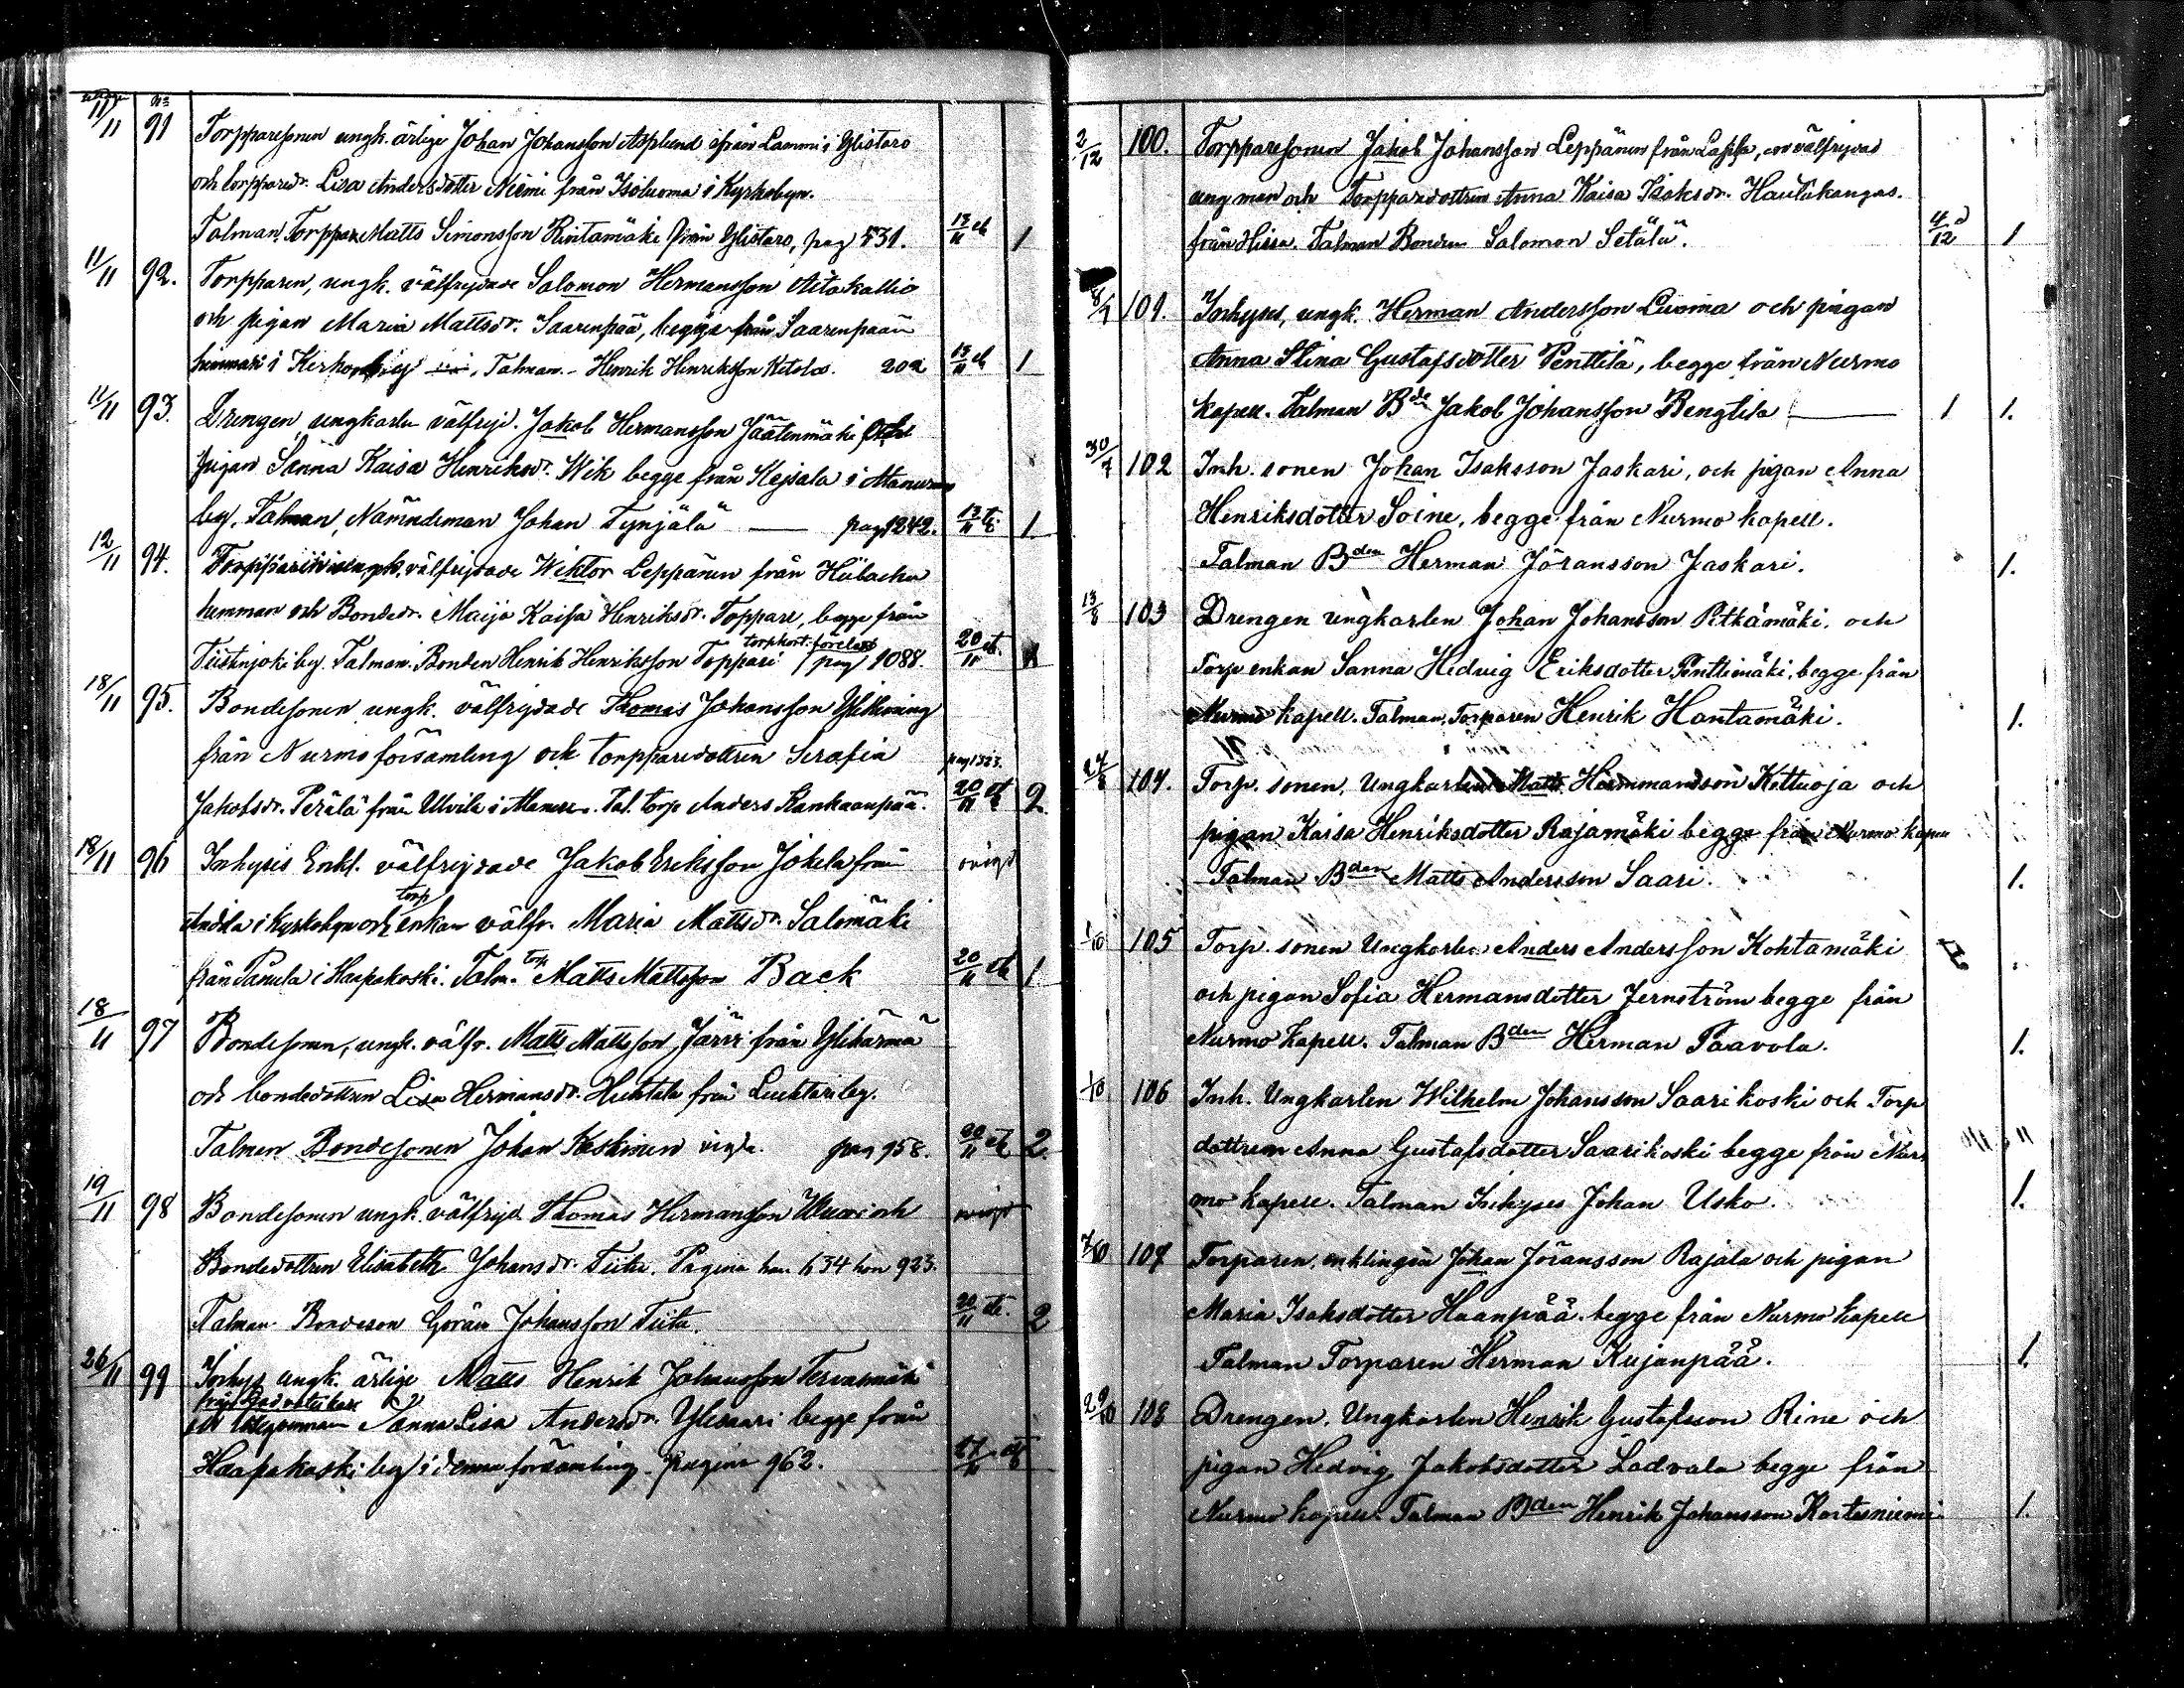 11/11 91 Torpparesonen ungk. ärlige Johan Johansson Asplund ifrån Lammi i Ylistaro
och torppared:r Lisa Andersdotter Niemi från Isoluoma i Kyrkobyn.
Talman Torppar Matts Simonsson Rintamäki från Ylistaro, pag 531. 13/11 1
11/11 92. Torpparen, ungk. välfrejdade Salomon Hermansson Aitakallio
och pigan Maria Mattsdr. Saarenpää, begge från Saarenpään
hemman i Talman. Henrik Henriksson Ketola. 202 13/11 1
11/11 93. Drengen, ungkarlen välfrejd. Jakob Hermansson Jäätenmäki och
pigan Sanna Kaisa Henriksdr. Wik begge från Kejsala i Alanurmo
by. Talman, Nämndeman Johan Tynjälä — pag 1242. 13/11 1
12/11 94. Torpparen ungk. välfrejdade Wiktor Leppänen från
hemman och Bondedr. Maija Kaisa Henriksdr. Toppari, begge från
torpkont. förelast
Tiistenjoki by. Talman. Bonden Henrik Henriksson Toppari / pag / 1088. 20/11 1
18/11 95. Bondesonen ungk. välfrejdade Thomas Johansson
från Nurmo församling och torpparedottren Serafia pag 1323.
Jakobsdr. Perälä från Tal. torp Anders Kankaanpää. 20/11 2
18/11 96 Inhyses Enkl. välfrejdade Jakob Eriksson Jokela från
torp
Andila i Kyrkobyn och enkan välfr. Maria Mattsdr. Salomäki
från Panula i Haapakoski. Talm. torp Matts Mattsson Back 20/11 1
18/11 97 Bondesonen, ungk. välfr. Matts Mattsson Järvi från Ylihärmä
och bondedottren Lisa Hermansdr. Huhtala från Luhtari by.
Talman Bondesonen Johan Koskinen pag 958. 20/11 2.
19/11 98 Bondesonen ungk. välfrejd. Thomas Hermansson och
Bondedottren Elisabeth Johansdr. Tiitu. Pagina han 634 hon 923.
Talman Bondeson Göran Johansson Tiitu. 20/11 2
26/11 99 Inhys ungk. ärlige Matts Henrik Johansson Tervasmäki
Sanna Lisa Andersdr. Ylisaari begge från
Haapakoski by i denna församling. pagina 962. 27/11
2/12 100. Torpparesonen Jakob Johansson Leppänen från Lappo, en välfrejdad
ung man och Torpparedottren Anna Kaisa Isaksdr. Hautakangas.
från Hirva. Talman Bonden Salomon Setälä. 4/12 1.
8/7 101. Inhyses, ungk. Herman Andersson Luoma och pigan
Anna Stina Gustafsdotter Penttilä, begge från Nurmo
kapell. Talman Bde Jakob Johansson Bengtila — 1 1.
30/7 102 Inh. sonen Johan Isaksson Jaskari, och pigan Anna
Henriksdotter Soine, begge från Nurmo kapell.
Talman Bden Herman Jöransson Jaskari. 1.
13/8 103 Drengen ungkarlen Johan Johansson Pitkämäki, och
Torp enkan Sanna Hedvig Eriksdotter Penttimäki, begge från
Nurmo kapell. Talman, Torparen Henrik Hantamäki. 1.
27/8 104. Torp. sonen, Ungkarlen Matts Hemmansson Kettuoja och
pigan Kaisa Henriksdotter Rajamäki begge från Nurmo kapell
Talman Bden Matts Andersson Saari. 1.
1/10 105 Torp. sonen Ungkarlen Anders Andersson Kohtamäki
och pigan Sofia Hermansdotter Jernström begge från
Nurmo kapell. Talman Bden Herman Paavola. 1.
1/10 106 Inh. Ungkarlen Wilhelm Johansson Saarikoski och Torp
dottren Anna Gustafsdotter Saarikoski begge från Nur,
mo kapell. Talman Inhyses Johan Usko. 1.
7/10 107 Torparen, enklingen Johan Jöransson Rajala och pigan
Maria Isaksdotter Haanpää. begge från Nurmo kapell
Talman Torparen Herman Kujanpää. 1.
29/10 108 Drengen, Ungkarlen Henrik Gustafsson Rine och
pigan Hedvig Jakobsdotter Ladvala begge från
Nurmo kapell. Talman Bden Henrik Johansson Kortesniemi 1.